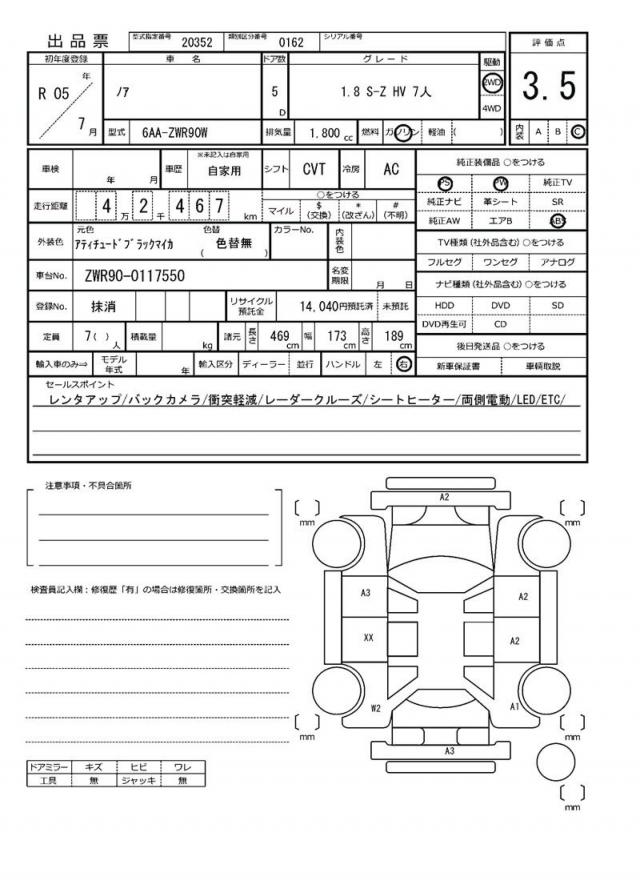 出品票
型式指定番号 20352 類別区分番号 0162 シリアル番号
評価点
3.5
内装 A B C
初年度登録 車名 ドア数 グレード 駆動
R 05 年 7 月
ノア
5 D
1.8 S-Z HV 7人
2WD
4WD
型式 6AA-ZWR90W 排気量 1,800 cc 燃料 ガソリン 軽油 ( )
車検 年 月 車歴 ※未記入は自家用 自家用 シフト CVT 冷房 AC
走行距離 4 万 2 千 4 6 7 km
○をつける
マイル $ (交換) * (改ざん) # (不明)
外装色 元色 アティチュードブラックマイカ 色替 ( 色替無 ) カラーNo. 内装色
車台No. ZWR90-0117550 名変期限 月 日
登録No. 抹消 リサイクル預託金 14,040円預託済 未預託
定員 7( ) 人 積載量 kg 諸元 長さ 469 cm 幅 173 cm 高さ 189 cm
輸入車のみ⇒ モデル年式 年 輸入区分 ディーラー 並行 ハンドル 左 右
純正装備品 ○をつける
PS PW 純正TV
純正ナビ 革シート SR
純正AW エアB ABS
TV種類(社外品含む)○をつける
フルセグ ワンセグ アナログ
ナビ種類(社外品含む)○をつける
HDD DVD SD
DVD再生可 CD
後日発送品 ○をつける
新車保証書 車輌取説
セールスポイント
レンタアップ/バックカメラ/衝突軽減/レーダークルーズ/シートヒーター/両側電動/LED/ETC/
注意事項・不具合箇所
検査員記入欄：修復歴「有」の場合は修復箇所・交換箇所を記入
ドアミラー キズ ヒビ ワレ
工具 無 ジャッキ 無
A2
[ ] mm [ ] mm
A3 A2
XX A2
W2 A1
[ ] mm [ ] mm
A3
[ ] mm